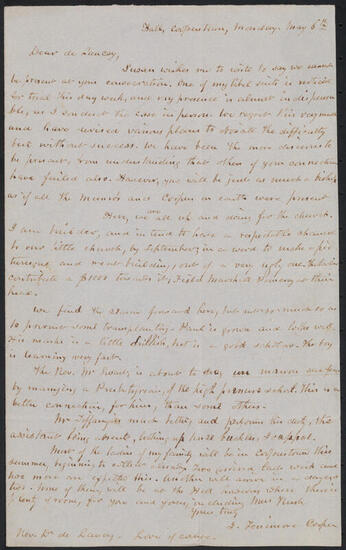 Hall, Cooperstown, Monday, May 6th
Dear de Lancey,
Susan wishes me to write to say we cannot
be present at your consecration. One of my libel suits is noticed
for trial this day week, and my presence is almost indispensa-
ble, as I conduct the case in person. We regret this very much
and have devised various plans to obviate the difficulty
but without success. We have been the more desirous to
be present, from understanding that others of your connections
have failed also. However, you will be just as much a bishop
as if all the Munros and Coopers on earth were present
Here, we are all up and doing for the church.
I am builder, and intend to have a respectable chancel
to our little church, by September; in a word to make a pic-
turesque and neat building, out of a very ugly one. The ladies
contribute a $1000 towards it, Field Marshal Nancy at their
head.
We find the season forward here, but not so much so as
to prevent some transplanting. Paul is grown and looks well.
His master is a little dullish, but is a good scholar. The boy
is learning very fast.
The Rev. Mr. is about to draw
by marrying a Presbyterian, of the high school. This is a
better connection, for him, than some others.
Mr. Tiffany is much better, and performs the duty, the
assistant being absent,
Most of the ladies of my family will be in Cooperstown this
summer, beginning to collect already. Two arrived last week and
two more are expected this. Another will arrive in a day or
two. None of them will be at the Hall, however, where there is
plenty of room, for you and yours, including Miss Rush
Yours truly
J. Fenimore Cooper
Rev. Dr. de Lancey. Love of course.